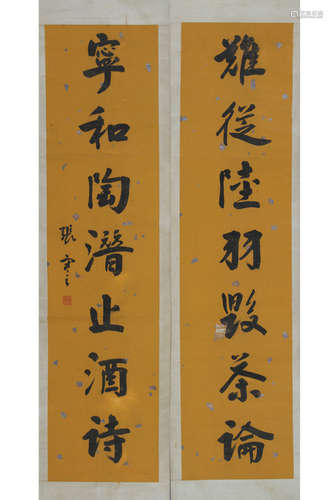 難從陸羽毀茶論
寧和陶潛止酒詩
張